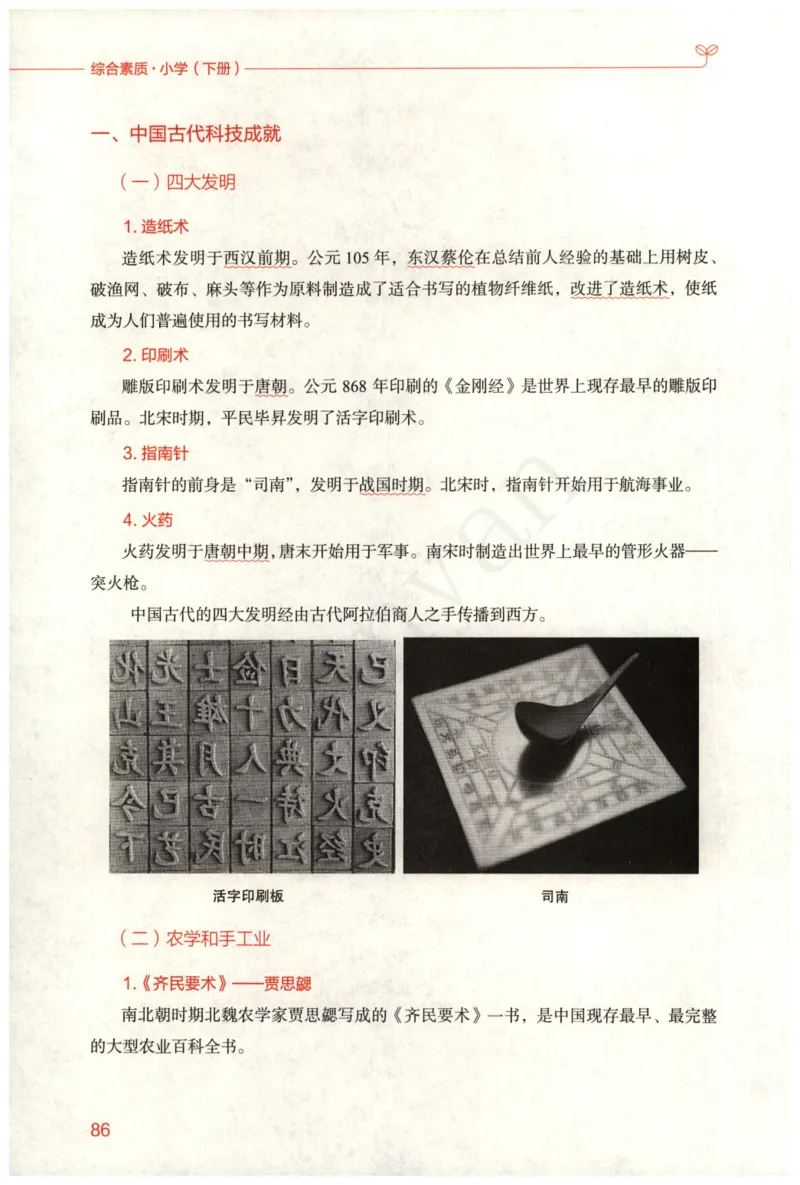 综合素质·小学（下册）
一、中国古代科技成就
（一）四大发明
1. 造纸术
造纸术发明于西汉前期。公元 105 年，东汉蔡伦在总结前人经验的基础上用树皮、
破渔网、破布、麻头等作为原料制造成了适合书写的植物纤维纸，改进了造纸术，使纸
成为人们普遍使用的书写材料。
2. 印刷术
雕版印刷术发明于唐朝。公元 868 年印刷的《金刚经》是世界上现存最早的雕版印
刷品。北宋时期，平民毕昇发明了活字印刷术。
3. 指南针
指南针的前身是“司南”，发明于战国时期。北宋时，指南针开始用于航海事业。
4. 火药
火药发明于唐朝中期，唐末开始用于军事。南宋时制造出世界上最早的管形火器——
突火枪。
中国古代的四大发明经由古代阿拉伯商人之手传播到西方。
化光士俭目天已
山王雄十力代义
克其月人典文印
今已古一诗火克
下艺民时江经史
活字印刷板
司南
（二）农学和手工业
1.《齐民要术》——贾思勰
南北朝时期北魏农学家贾思勰写成的《齐民要术》一书，是中国现存最早、最完整
的大型农业百科全书。
86